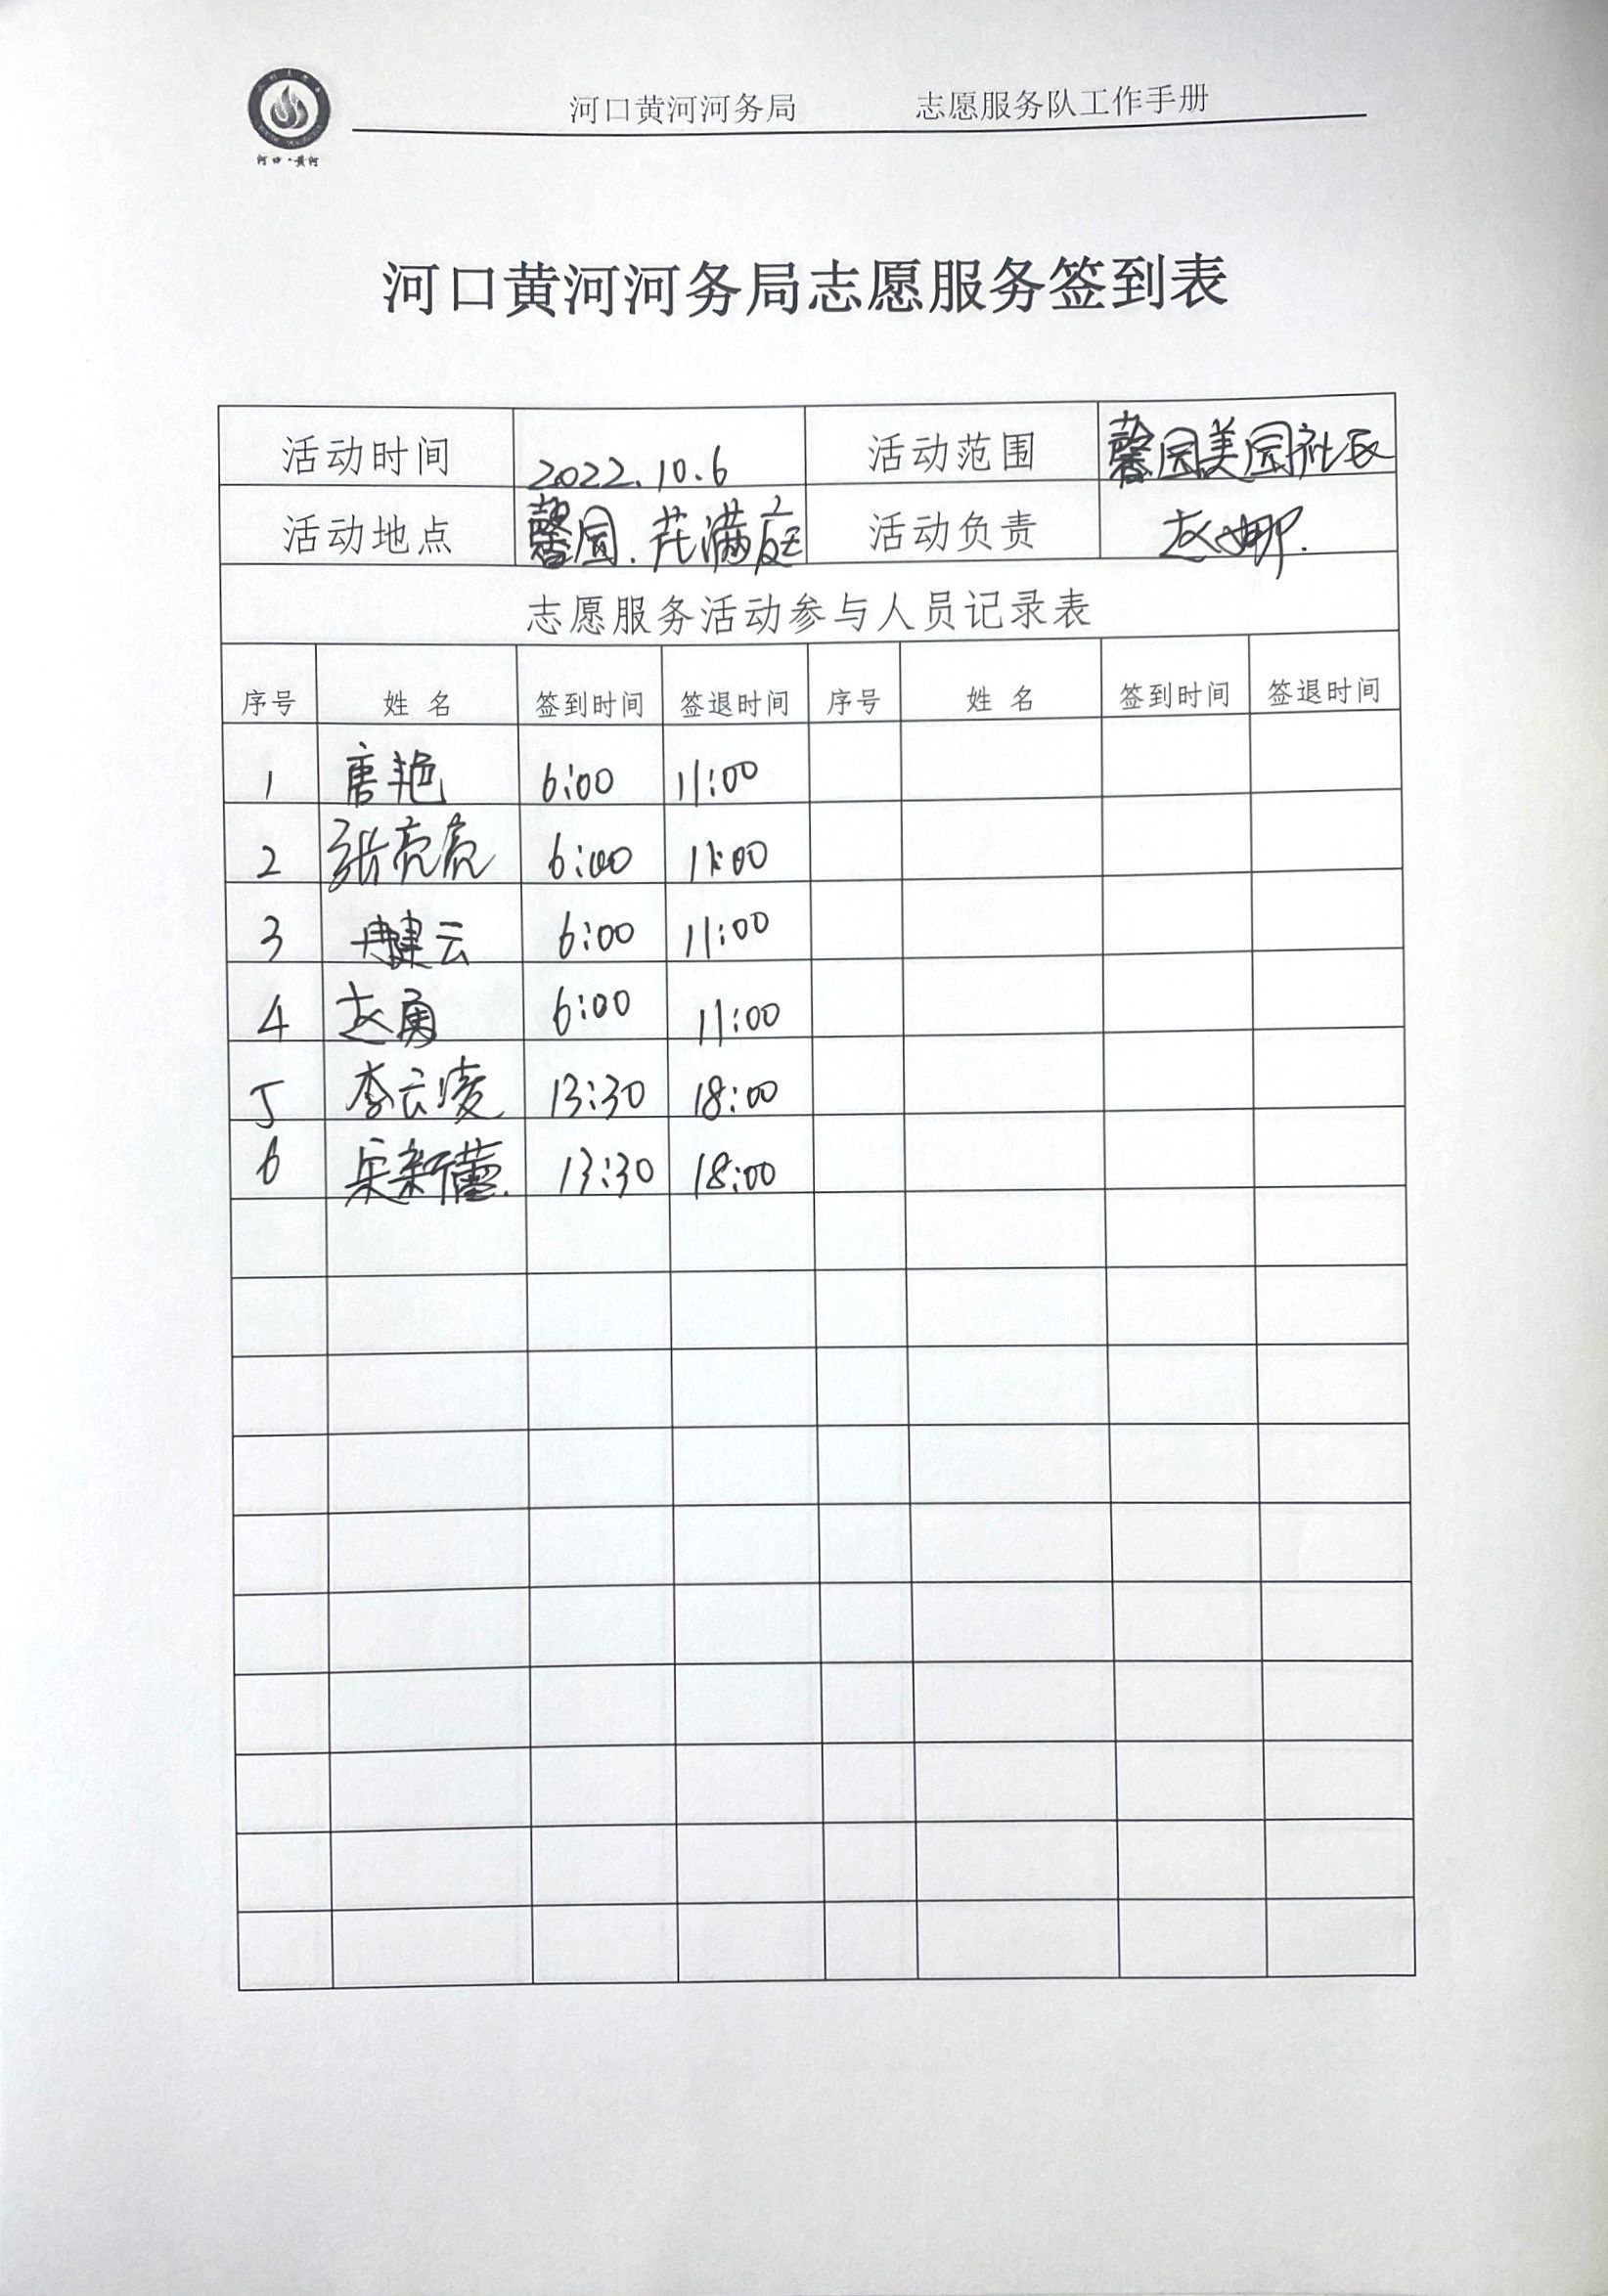 河口黄河河务局 志愿服务队工作手册
河口·黄河
河口黄河河务局志愿服务签到表
活动时间 2022.10.6 活动范围 馨园美园社区
活动地点 馨园.花满庭 活动负责 赵娜.
志愿服务活动参与人员记录表
序号 姓名 签到时间 签退时间 序号 姓名 签到时间 签退时间
1 唐艳 6:00 11:00
2 张亮亮 6:00 11:00
3 冉建云 6:00 11:00
4 赵勇 6:00 11:00
5 李云凌 13:30 18:00
6 宋新蕾. 13:30 18:00